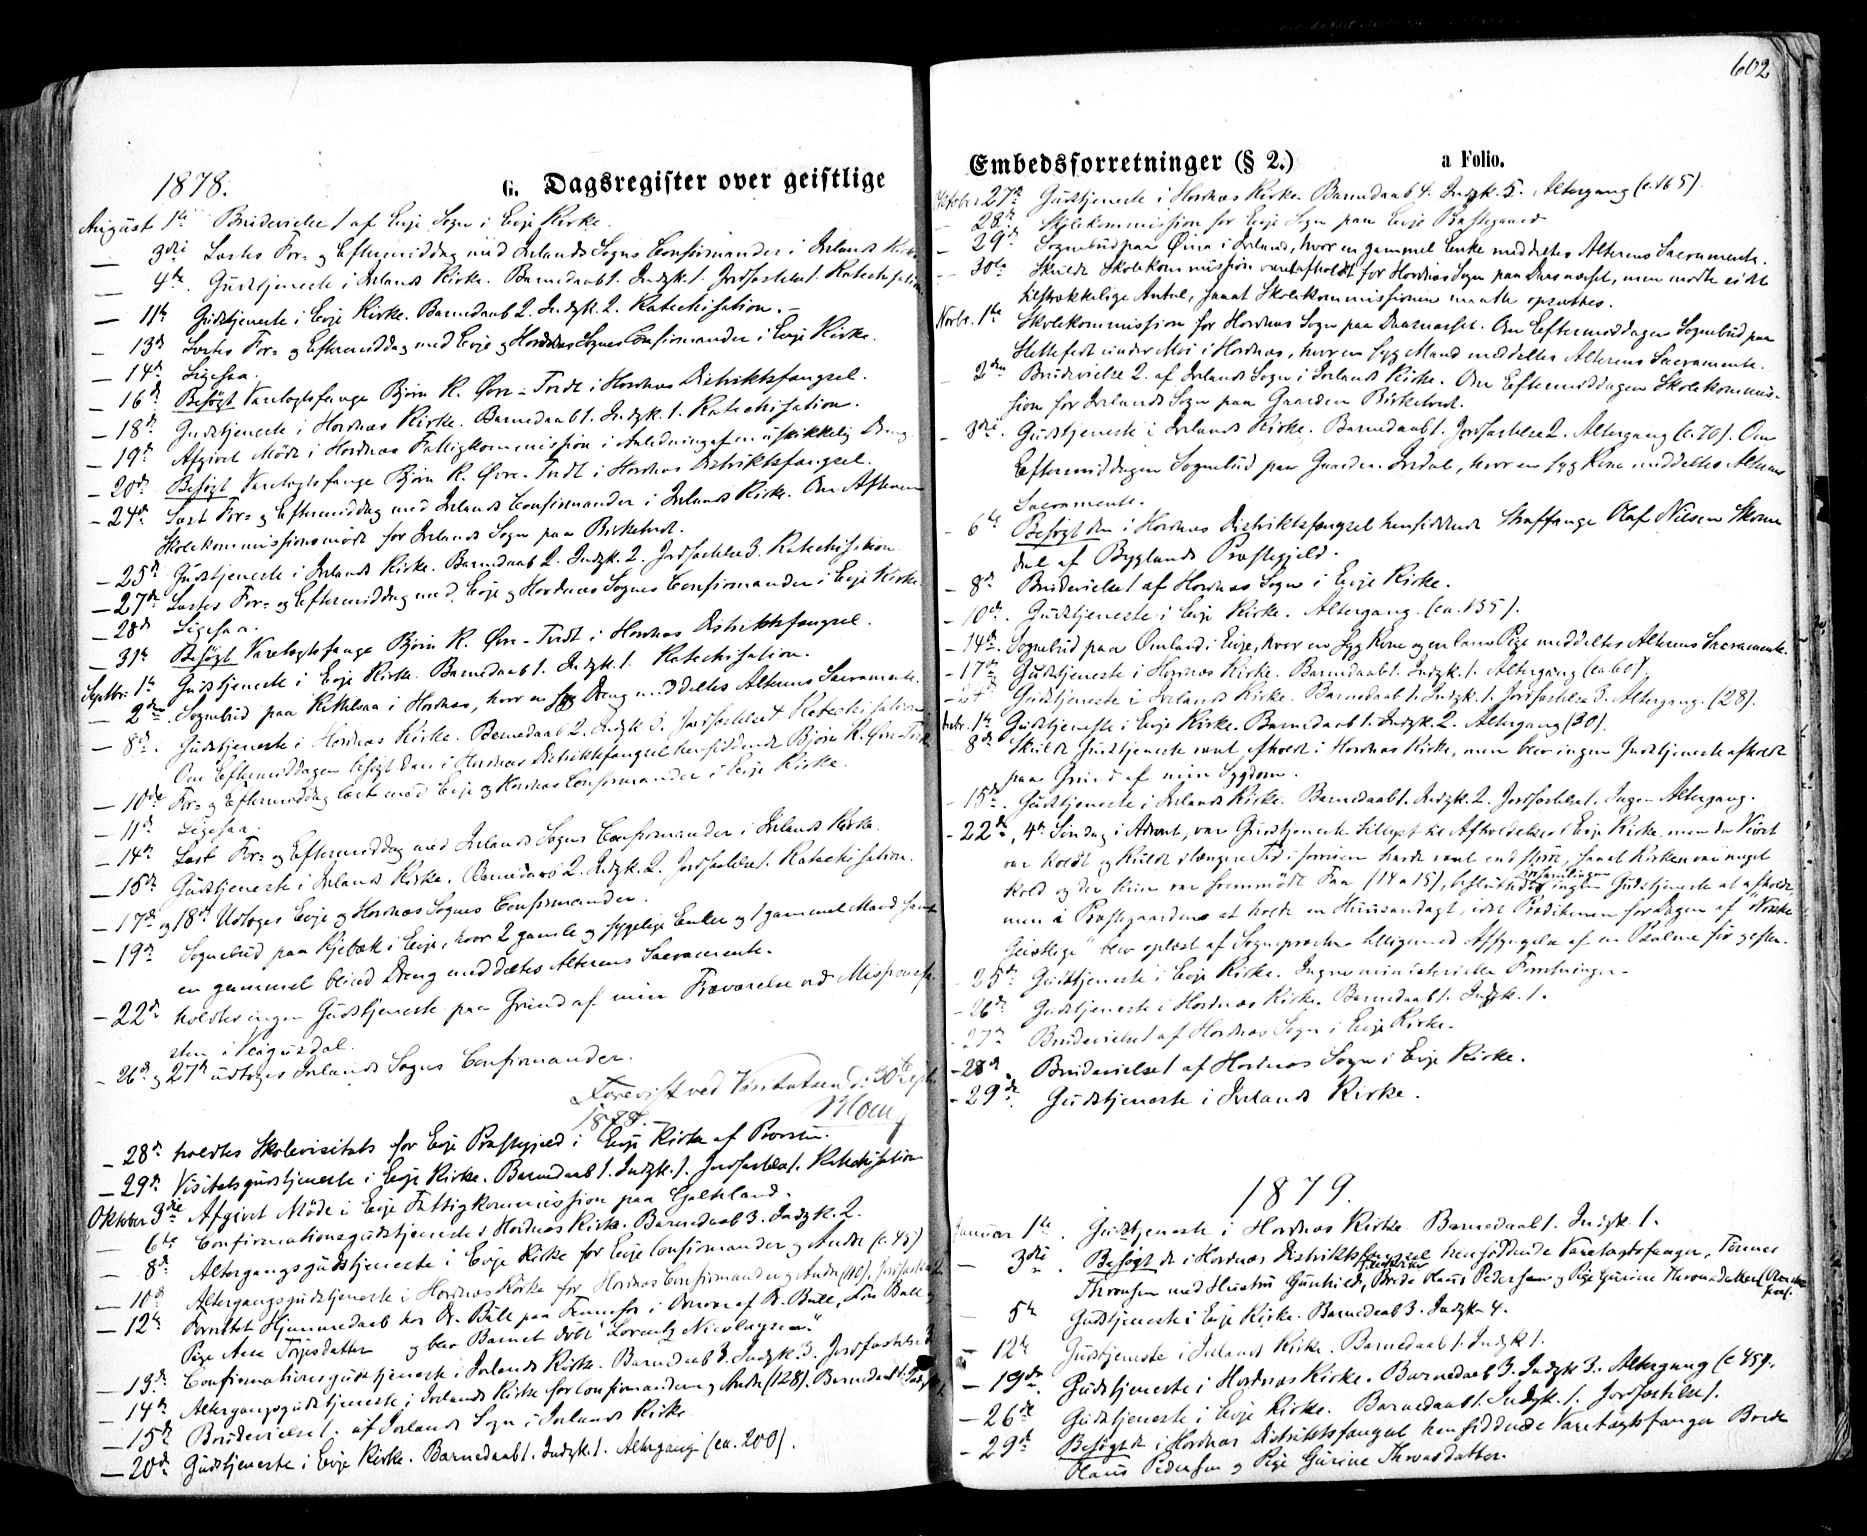 1878.
G. Dagsregister over geistlige
August 1ste Brudevielse 1 af Evje Sogn i Evje Kirke.
— 3die Læstes For- og Eftermiddag med Ivelands Sogns Confirmander i Ivelands Kirke
— 4de Gudstjeneste i Ivelands Kirke. Barnedaab 1. Indgk. 1. Jordfæstelse 1. Katechisation
— 11te Gudstjeneste i Evje Kirke. Barnedaab 2. Indgk. 2. Katechisation. –
— 13de Læstes For- og Eftermiddag med Evje og Hordnæs Sognes Confirmander i Evje Kirke.
— 14de Ligesaa.
— 16de Besøgt Varetægtsfange Bjørn K. Øvre-Tvedt i Hordnæs Distriktsfængsel.
— 18de Gudstjeneste i Hordnæs Kirke. Barnedaab 1. Indgk. 1. Katechisation.
— 19de Afgivet Møde i Hordnæs Fattigkommission i Anledning af en uskikkelig Dreng
— 20de Besøgt Varetægtsfange Bjørn K. Øvre-Tvedt i Hordnæs Distriktsfængsel.
— 24de Læst For- og Eftermiddag med Ivelands Confirmander i Ivelands Kirke. Om Aftenen
Skolekommissionsmøde for Ivelands Sogn paa Birketvedt.
— 25de Gudstjeneste i Ivelands Kirke. Barnedaab 2. Indgk. 2. Jordfæstelse 3. Katechisation
— 27de Læstes For- og Eftermiddag med Evje og Hordnæs Sognes Confirmander i Evje Kirke
— 28de Ligesaa.
— 31te Besøgt Varetægtsfange Bjørn K. Øvre-Tvedt i Hordnæs Distriktsfængsel.
Septbr. 1ste Gudstjeneste i Evje Kirke. Barnedaab 1. Indgk. 1. Katechisation.
— 2den Sognebud paa i Hordnæs, hvor en syg Dreng meddeltes Alterens Sacramente.
— 8de Gudstjeneste i Hordnæs Kirke. Barnedaab 2. Indgk 3. Jordfæstelse 1 Katechisation
Om Eftermiddagen besøgt den i Hordnæs Distriktsfængsel hensiddende Bjørn K. Øvre Tvedt
— 10de For- og Eftermiddag læst med Evje og Hordnæs Confirmander i Evje Kirke.
— 11te Ligesaa.
— 14de Læst For- og Eftermiddag med Ivelands Sogns Confirmander i Ivelands Kirke.
— 15de Gudstjeneste i Ivelands Kirke. Barnedaab 2. Indgk. 2. Jordfæstelse 1. Katechisation.
— 17de og 18de Udtoges Evje og Hordnæs Sognes Confirmander.
— 19de Sognebud paa Kjebæk i Evje, hvor 2 gamle og sygelige Enker og 1 gammel Mand samt
en gammel blind Dreng meddeltes Alterens Sacramente.
— 22de holdtes ingen Gudstjeneste paa Grund af min Fraværelse ved Missionsfe-
sten i Veigusdal.
— 26de og 27de udtoges Ivelands Sogns Confirmander.
Forevist ved Visitatsen d. 30te Septr.
1878.
— 28de holdtes Skolevisitats for Evje Præstegjeld i Evje Kirke af Provsten.
— 29de Visitatsgudstjeneste i Evje Kirke. Barnedaab 1. Indgk. 1. Jordfæstelse 1. Katechisation
Oktober 3die Afgivet Møde i Evje Fattigkommission paa Galteland.
— 6te Confirmationsgudstjeneste i Hordnæs Kirke. Barnedaab 3. Indgk. 2.
— 8de Altergangsgudstjeneste i Evje Kirke for Evje Confirmander og Andre (c. 45)
— 10de Altergangsgudstjeneste i Hordnæs Kirke for Hordnæs Confirmander og Andre
— 12te Forrettet Hjemmedaab hos Dr. Bull paa Fennefos i Overvær af Dr. Bull, Fru Bull og
Pige Aase Torjesdatter og blev Barnet døbt "Lorentz Nicolaysen."
— 13de Confirmationsgudstjeneste i Ivelands Kirke. Barnedaab 3. Indgk. 3. Jordfæstelse 3
— 14de Altergangsgudstjeneste i Ivelands Kirke for Confirmanderne og Andre (128). Barnedaab 1. Indgk.
— 15de Brudevielse 1. af Ivelands Sogn i Ivelands Kirke
— 20de Gudstjeneste i Evje Kirke. Barnedaab 1. Indgk. 1. Altergang (ca. 200).
602
Embedsforretninger (§ 2.) a Folio.
Oktober 27de Gudstjeneste i Hordnæs Kirke. Barnedaab 4. Indgk. 5. Altergang (c. 165).
— 28de Skolekommission for Evje Sogn paa Evje Præstegaard
— 29de Sognebud paa Øina i Iveland, hvor en gammel Enke meddeltes Alterens Sacramente.
— 30te Skulde Skolekommission været afholdt for Hordnæs Sogn paa Daasnæset, men mødte ei det
tilstrækkelige Antal, saaat Skolekommissionen maatte opsættes.
Novbr. 1ste Skolekommission for Hordnæs Sogn paa Daasnæset. Om Eftermiddagen Sognebud paa
under Moi i Hordnæs, hvor en syg Mand meddeltes Alterens Sacramente.
— 2den Brudevielse 2. af Ivelands Sogn i Ivelands Kirke. Om Eftermiddagen Skolekommis-
sion for Ivelands Sogn paa Gaarden Birketvedt.
— 3die Gudstjeneste i Ivelands Kirke. Barnedaab 1. Jordfæstelse 2. Altergang (c. 70). Om
Eftermiddagen Sognebud paa Gaarden Ivedal, hvor en syg Kone meddeltes Alterens
Sacramente.
— 6te Besøgt den i Hordnæs Distriktsfængsel hensiddende Straffange Olaf Nilsen Skome
dal af Byglands Præstegjeld.
— 8de Brudevielse 1 af Hordnæs Sogn i Evje Kirke.
— 10de Gudstjeneste i Evje Kirke. Altergang. (ca. 155).
— 14de Sognebud paa Omland i Evje, hvor en syg Kone og en lam Pige meddeltes Alterens Sacramente.
— 17de Gudstjeneste i Hordnæs Kirke. Barnedaab 1. Indgk. 1. Altergang (ca 60).
— 24de Gudstjeneste i Ivelands Kirke. Barnedaab 1. Indgk. 1. Jordfæstelse 3. Altergang. (28).
Decbr. 1ste Gudstjeneste i Evje Kirke. Barnedaab 1. Indgk. 2. Altergang (30).
— 8de Skulde Gudstjeneste været afholdt i Hordnæs Kirke, men blev ingen Gudstjeneste afholdt
paa Grund af min Sygdom.
— 15de Gudstjeneste i Ivelands Kirke. Barnedaab 1. Indgk. 2. Jordfæstelse 1. Ingen Altergang.
— 22de, 4de Søndag i Advent, var Gudstjeneste tillyst til Afholdelse i Evje Kirke, men da Veiret
var koldt og Kulde i længere Tid i forveien havde været end større, saaat Kirken var meget
kold og der kun var fremmødt Faa (14 a 15), besluttedes forsamlingen ingen Gudstjeneste at afholde,
men i Præstegaarden at holde en Huusandagt, idet Prædikenen for Dagen af "Norske
Geistlige" blev oplæst af Sognepresten tilligemed Afsyngelse af en Psalme før og efter.
— 25de Gudstjeneste i Evje Kirke. Ingen ministerielle Forretninger.
— 26de Gudstjeneste i Hordnæs Kirke. Barnedaab 1. Indgk. 1.
— 27de Brudevielse 1 af Hordnæs Sogn i Evje Kirke.
— 28de Brudevielse 1 af Hordnæs Sogn i Evje Kirke.
— 29de Gudstjeneste i Ivelands Kirke.
1879.
Januar 1ste Gudstjeneste i Hordnæs Kirke Barnedaab 1. Indgk. 1.
— 3die Besøgt de i Hordnæs Distriktsfængsel hensiddende Varetægtsfanger, Tønnes
Thronsen med Hustru Gunhild, Brede Olaus Pedersen og Pige Gurine Thronsdatter
— 5te Gudstjeneste i Evje Kirke. Barnedaab 3. Indgk. 4.
— 12te Gudstjeneste i Ivelands Kirke. Barnedaab 1. Indgk 1.
— 19de Gudstjeneste i Hordnæs Kirke. Barnedaab 3. Indgk 3. Altergang (c 45).
— 26de Gudstjeneste i Evje Kirke. Barnedaab 1. Indgk. 1. Jordfæstelse 1.
— 29de Besøgt de i Hordnæs Distriktsfængsel hensiddende Varetægtsfanger Brede
Olaus Pedersen og Pige Gurine Thronsdatter.